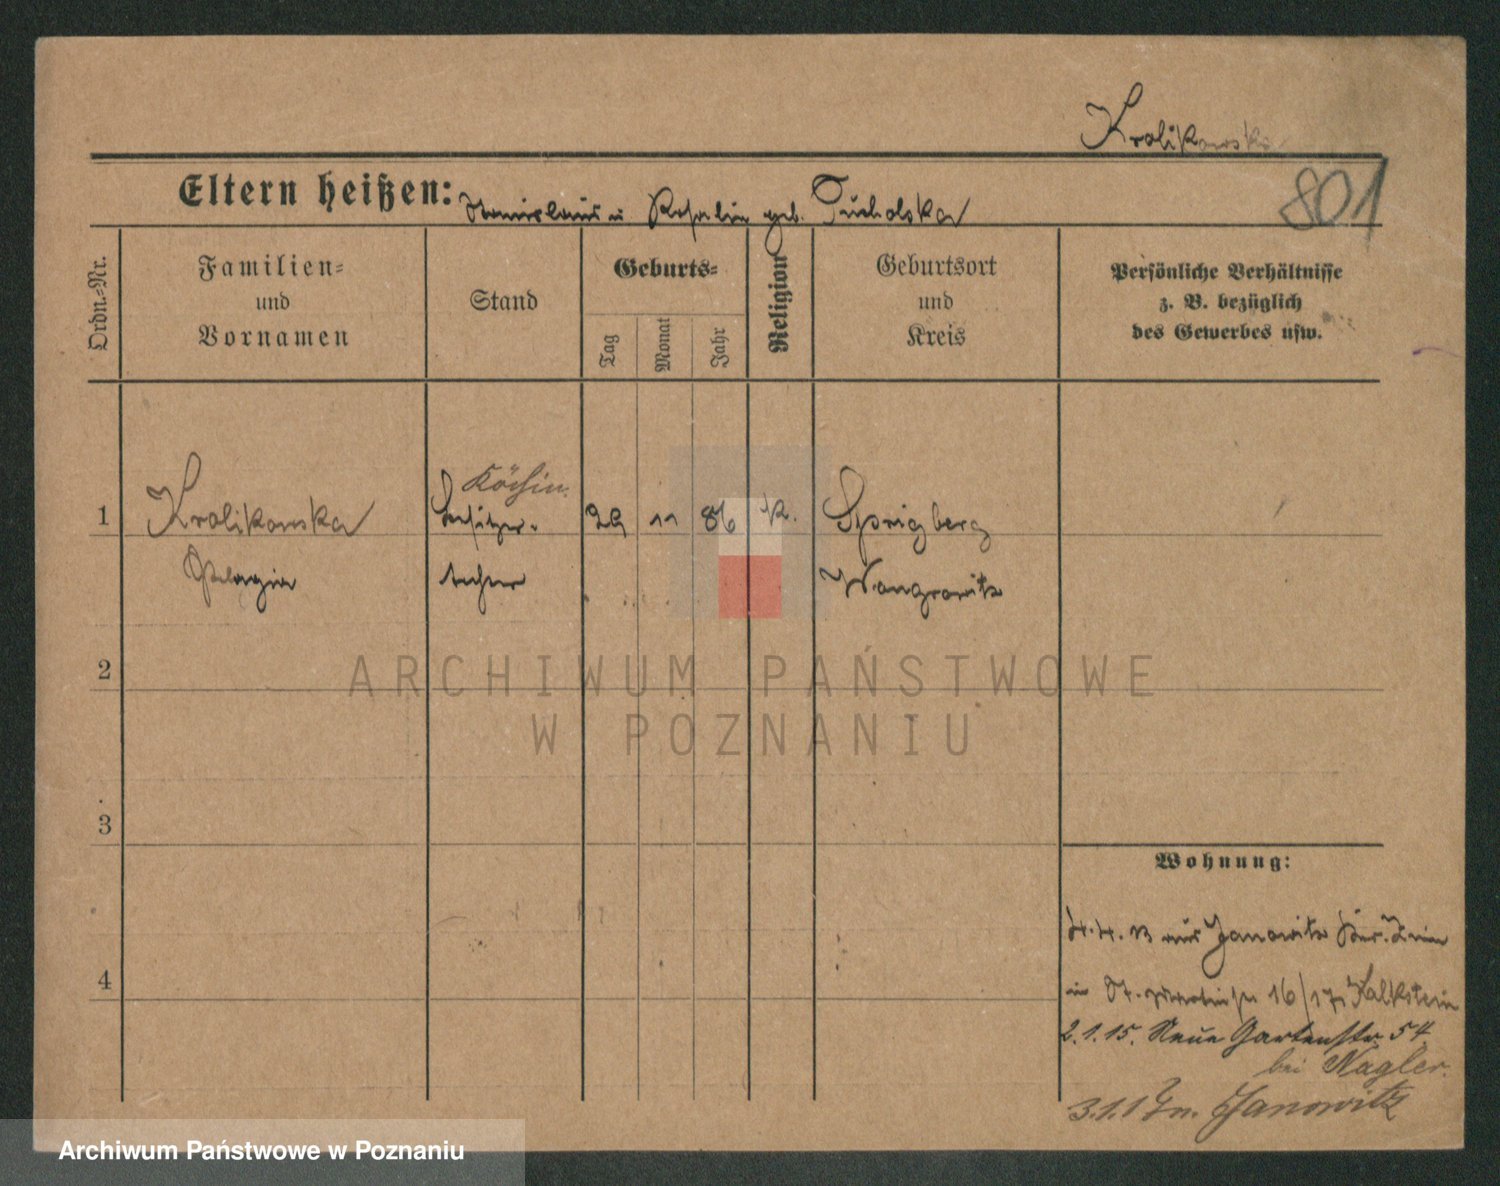 Krolikowska
801
Eltern heißen: Stanislaus u Rosalie geb. Tucholska
Ordn.-Nr.
Familien-
und
Vornamen
Stand
Geburts-
Tag
Monat
Jahr
Religion
Geburtsort
und
Kreis
Persönliche Verhältnisse
z. B. bezüglich
des Gewerbes usw.
Köchin.
1 Krolikowska Besitzer- 29 11 86 K. Sprigberg
Pelagia tochter Wongrowitz
2
ARCHIWUM PAŃSTWOWE
W POZNANIU
3
Wohnung:
4.4.13 aus Janowitz Znin
4
in St. 16/17, Kalkstein
2.1.15. Neue Gartenstr 54
bei Nagler.
3.1.17 n. Janowitz
Archiwum Państwowe w Poznaniu